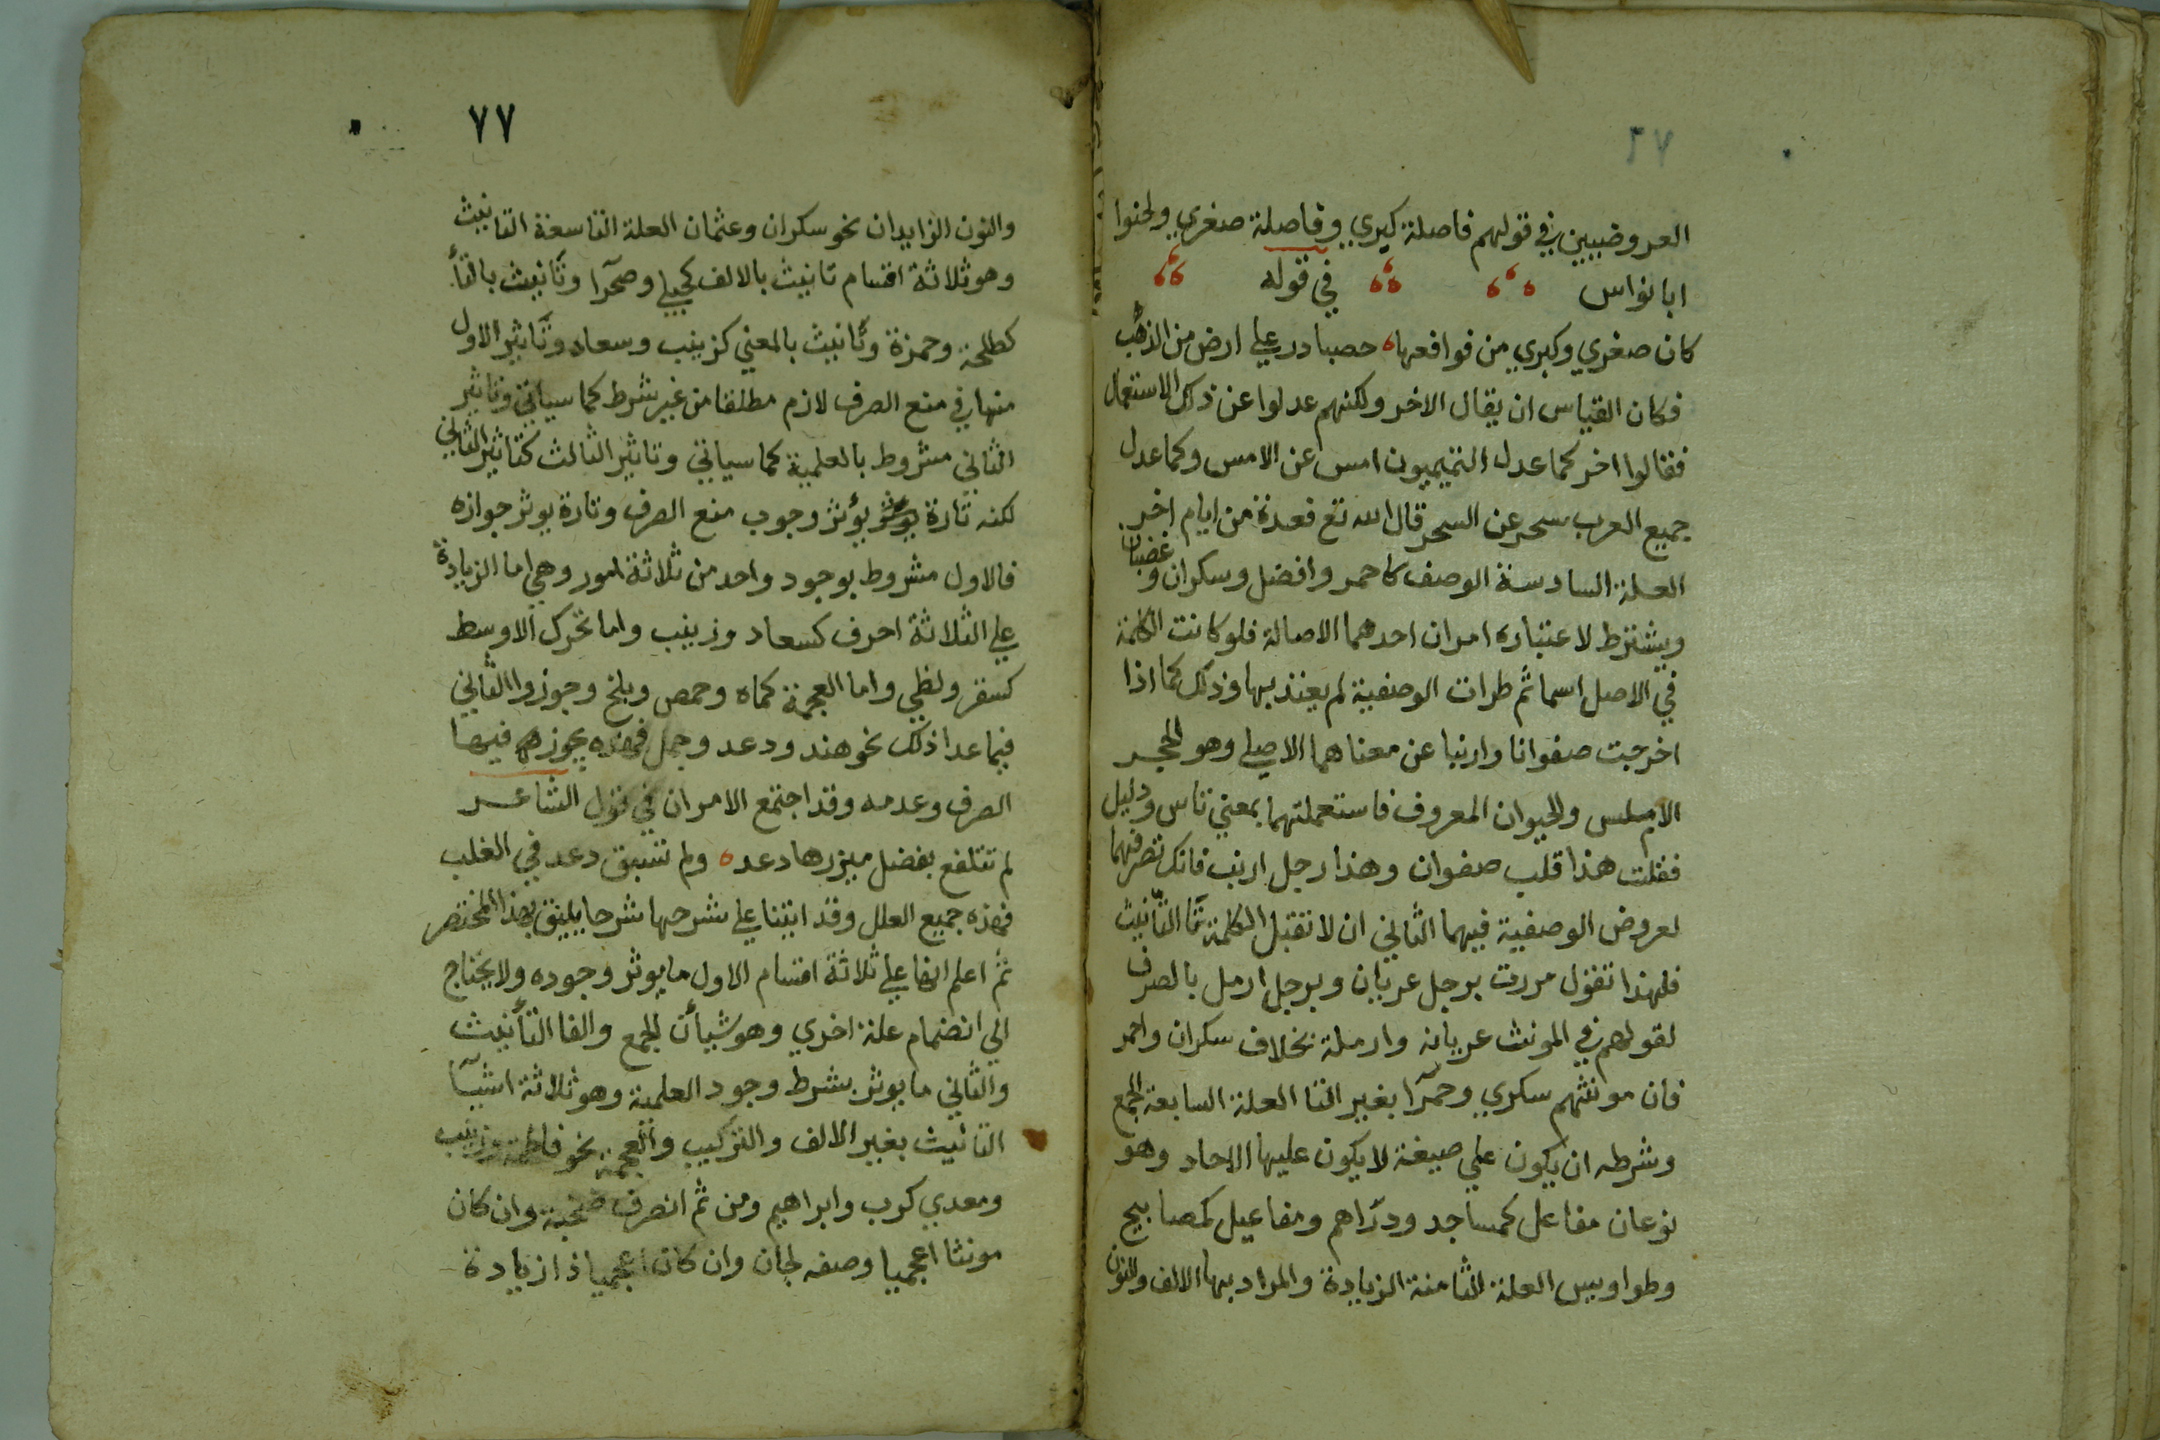 العروضيين في قولهم فاصلة كبري وفاصلة صغري ولحنوا
ابا نواس في قوله
كان صغري وكبري من فواقعها حصبا در علي ارض من الذهب
فكان القياس ان يقال الاخر ولكنهم عدلوا عن ذلك الاستعمال
فقالوا اخر كما عدل التميميون امس عن الامس وكما عدل
جميع العرب سحر عن السحر قال الله تع فعدة من ايام اخر
العلة السادسة الوصف كاحمر وافضل وسكران وغضبان
ويشترط لاعتباره امران احدهما الاصالة فلو كانت الكلمة
في الاصل اسما ثم طرات الوصفية لم يعتد بها وذلك كما اذا
اخرجت صفوانا وارنبا عن معناهما الاصلي وهو الحجر
الاملس والحيوان المعروف فاستعملتهما بمعني قاس وذليل
فقلت هذا قلب صفوان وهذا رجل ارنب فانك تصرفهما
لعروض الوصفية فيهما الثاني ان لا تقبل الكلمة تا التأنيث
فلهذا تقول مررت برجل عريان وبرجل ارمل بالصرف
لقولهم في المونث عريانه وارملة بخلاف سكران واحمر
فان مونثهم سكري وحمرآ بغير التا العلة السابعة الجمع
وشرطه ان يكون علي صيغة لا يكون عليها الاحاد وهو
نوعان مفاعل كمساجد ودراهم ومفاعيل كمصابيح
وطواويس العلة الثامنة الزيادة والمراد بها الالف والنون
٧٧
والنون الزايدان نحو سكران وعثمان العلة التاسعة التانيث
وهو ثلاثة اقسام تانيث بالالف كحبلي وصحرآ وتانيث بالتأ
كطلحة وحمزة وتأنيث بالمعني كزينب وسعاد وتاثير الاول
منها في منع الصرف لازم مطلقا من غير شرط كما سياتي وتاثير
الثاني مشروط بالعلمية كما سياتي وتاثير الثالث كتاثير الثاني
لكنه تارة يوثر يؤثر وجوب منع الصرف وتارة يوثر جوازه
فالاول مشروط بوجود واحد من ثلاثة امور وهي اما الزيادة
علي الثلاثة احرف كسعاد وزينب واما تحرك الاوسط
كسقر ولظي واما العجمة كماه وحمص وبلخ وجوزوا الثاني
فيما عدا ذلك نحو هند ودعد وجمل فهذه يجوز فيها
الصرف وعدمه وقد اجتمع الامران في قول الشاعر
لم تتلفع بفضل ميزرها دعد ولم تسبق دعد في العلب
فهذه جميع العلل وقد اتينا علي شرحها شرحا يليق بهذا المختصر
ثم اعلم انها علي ثلاثة اقسام الاول ما يوثر وجوده ولا يحتاج
الي انضمام علة اخري وهو شيأن الجمع والفا التأنيث
والثاني ما يوثر بشرط وجود العلمية وهو ثلاثة اشيآ
التانيث بغير الالف والتركيب والعجمة نحو فاطمة وزينب
ومعدي كرب وابراهيم ومن ثم انصرف صنجة وان كان
مونثا اعجميا وصف لجان وان كان اعجميا ذا زيادة